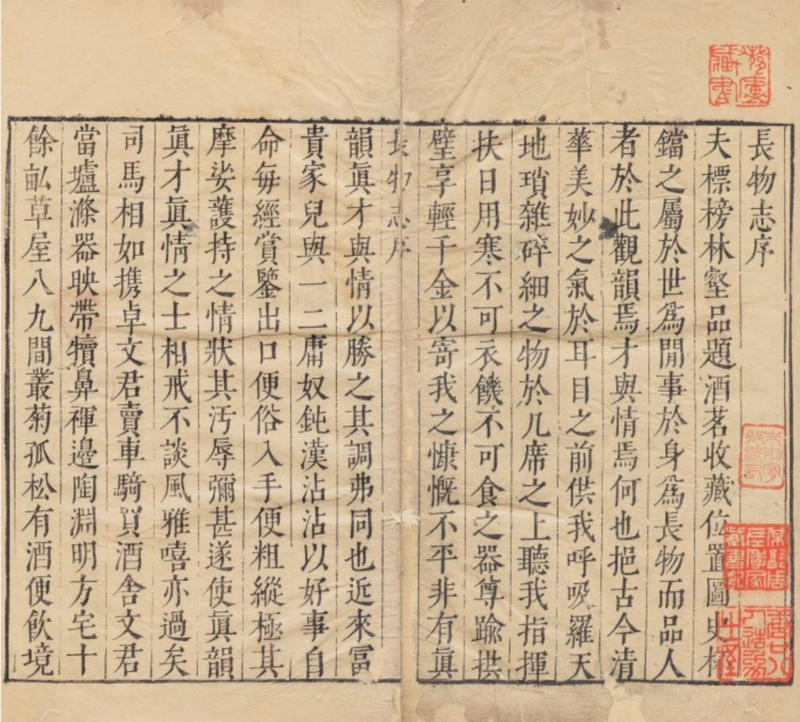 長物志序
夫標榜林壑品題酒茗收藏位置圖史杯
鐺之屬於世爲閒事於身爲長物而品人
者於此觀韻焉才與情焉何也挹古今清
華美妙之氣於耳目之前供我呼吸羅天
地瑣雜碎細之物於几席之上聽我指揮
扶日用寒不可衣饑不可食之器尊踰拱
璧享輕千金以寄我之慷慨不平非有眞
長物志序
韻眞才與情以勝之其調弗同也近來冨
貴家兒與一二庸奴鈍漢沾沾以好事自
命每經賞鑒出口便俗入手便粗縱極其
摩娑護持之情狀其汚辱彌甚遂使眞韻
眞才眞情之士相戒不談風雅嘻亦過矣
司馬相如携卓文君賣車騎買酒舍文君
當壚滌器映帶犢鼻褌邊陶淵明方宅十
餘畝草屋八九間叢菊孤松有酒便飲境